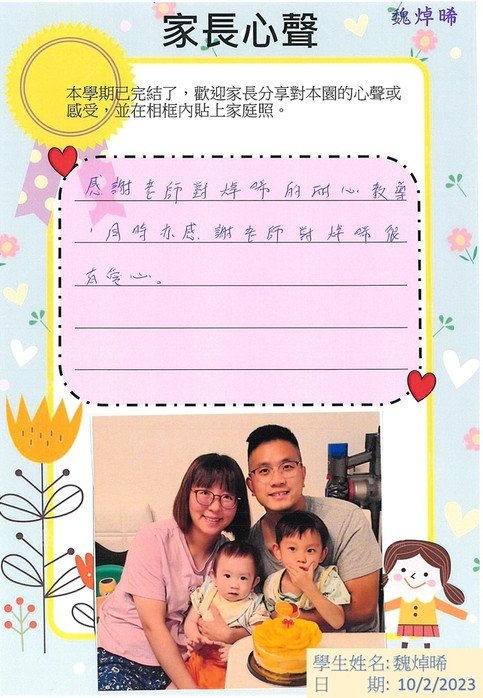 家長心聲
魏焯晞
本學期已完結了，歡迎家長分享對本園的心聲或
感受，並在相框內貼上家庭照。
感謝老師對焯晞的耐心教導
，同時亦感謝老師對焯晞很
有愛心。
學生姓名: 魏焯晞
日　　期: 10/2/2023